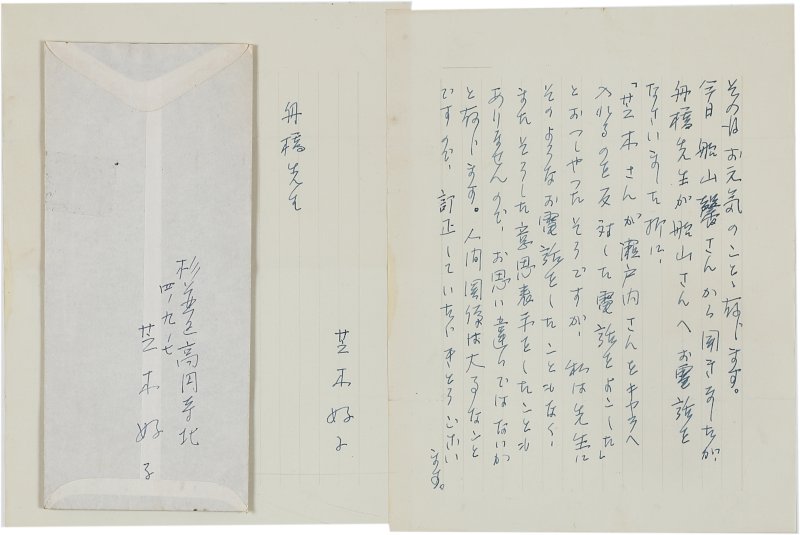 その後お元気のことと存じます。
今日 船山馨さんから聞きましたが、
舟橋先生が船山さんへお電話を
なさいました折に、
「芝木さんが瀬戸内さんをキアラへ
入れるのを反対した電話をよこした」
とおっしゃったそうですが、私は先生に
そのようなお電話をしたこともなく、
またそうした意思表示をしたことも
ありませんので、お思い違いではないか
と存じます。人間関係は大事なこと
ですので、訂正していただきとうござい
ます。
芝木好子
舟橋先生
杉並区高円寺北
四ノ九ノ七
芝木好子